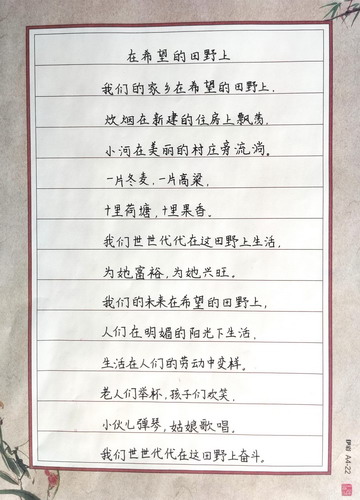 在希望的田野上
我们的家乡在希望的田野上，
炊烟在新建的住房上飘荡，
小河在美丽的村庄旁流淌。
一片冬麦，一片高粱，
十里荷塘，十里果香。
我们世世代代在这田野上生活，
为她富裕，为她兴旺。
我们的未来在希望的田野上，
人们在明媚的阳光下生活，
生活在人们的劳动中变样。
老人们举杯，孩子们欢笑，
小伙儿弹琴，姑娘歌唱。
我们世世代代在这田野上奋斗。
伊和 A4-22